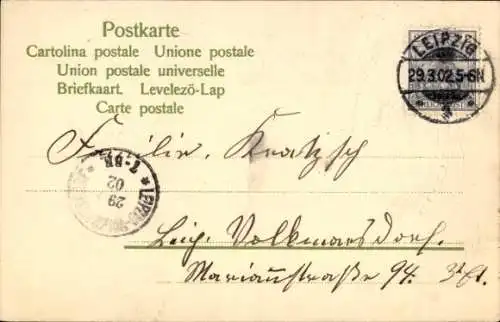 Postkarte
Cartolina postale Unione postale
Union postale universelle
Briefkaart. Levelezö-Lap
Carte postale
LEIPZIG
29.3.02.5-6N
Familie. Kratzsch
LEIPZIG
29
02
7-8N
Leipz. Volkmarsdorf.
Mariannstraße 94. 3. Et.